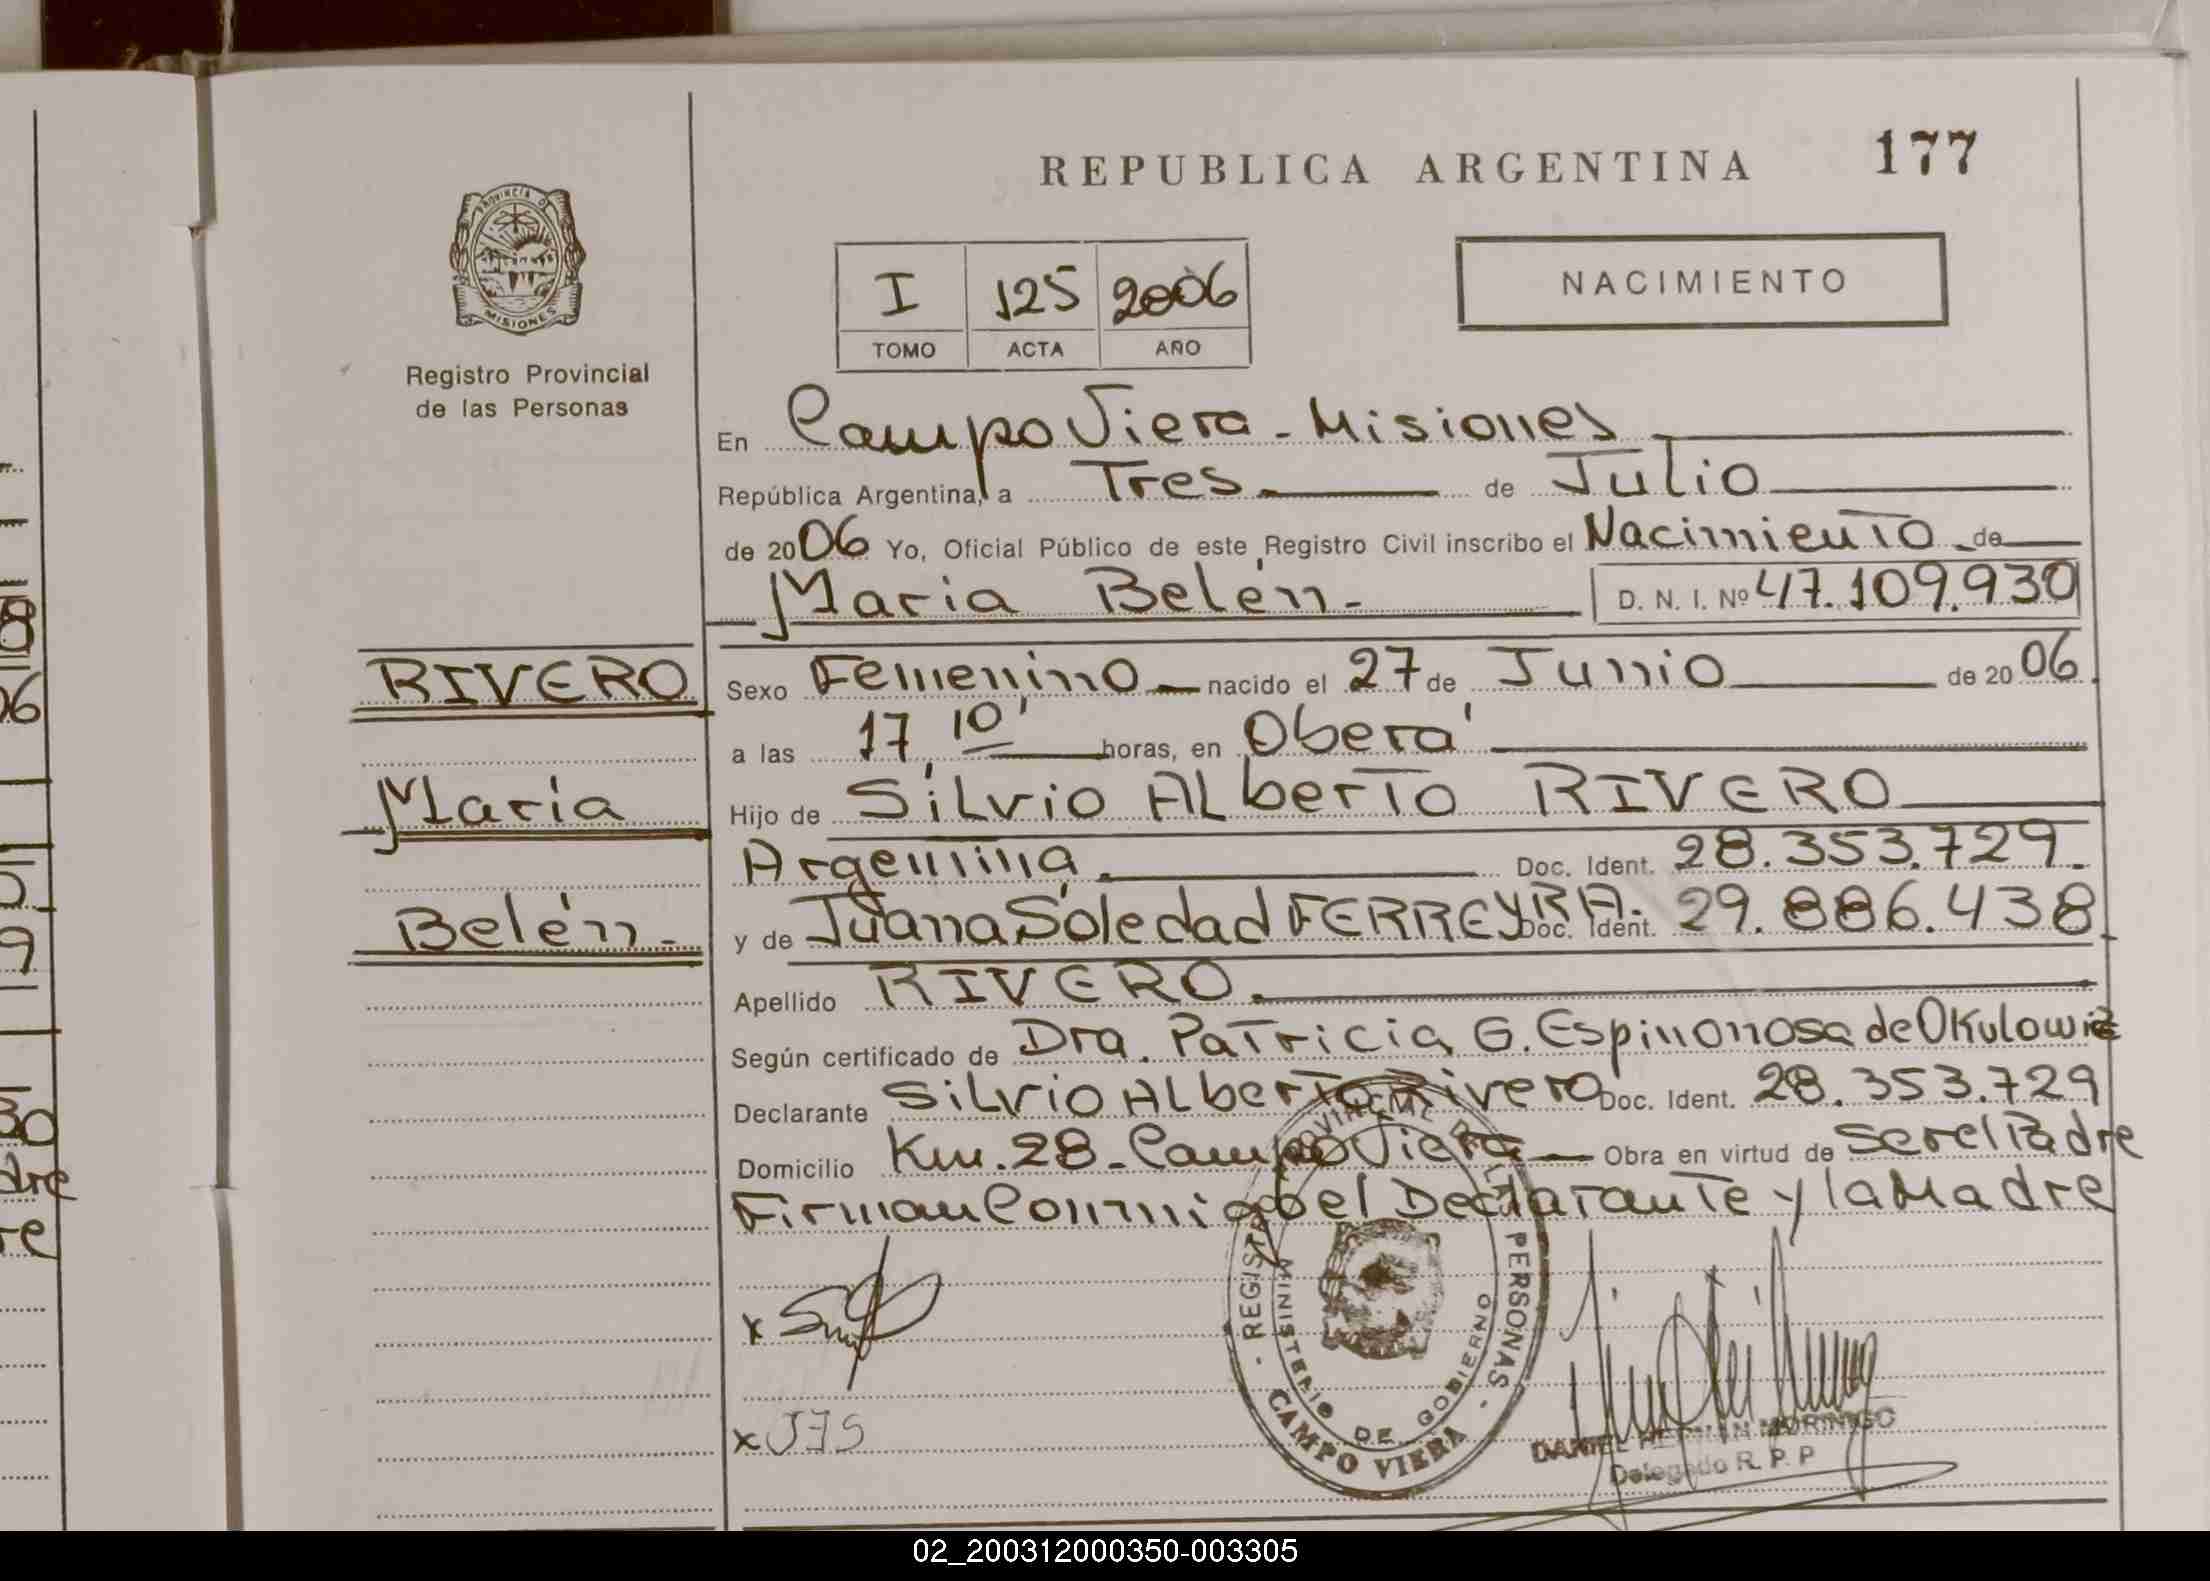 REPUBLICA ARGENTINA 177
PROVINCIA DE
MISIONES
Registro Provincial
de las Personas
I 125 2006
TOMO ACTA AÑO
NACIMIENTO
En Campo Viera - Misiones
República Argentina, a Tres de Julio
de 2006 Yo, Oficial Público de este Registro Civil inscribo el Nacimiento de
Maria Belén.- D. N. I. Nº 47.109.930
RIVERO
Sexo Femenino nacido el 27 de Junio de 2006
a las 17 10' horas, en Oberá
Maria
Hijo de Silvio Alberto RIVERO
Argentina. Doc. Ident. 28.353.729.
Belén.-
y de Juana Soledad FERREYRA. Doc. Ident. 29.886.438
Apellido RIVERO.
Según certificado de Dra. Patricia G. Espinonosa de Okulowic
Declarante Silvio Alberto Rivero Doc. Ident. 28.353.729
Domicilio Km. 28 - Campo Viera Obra en virtud de Ser el Padre
Firman Conmigo el Declarante y la Madre
x
x JFS
REGISTRO PROVINCIAL DE LAS PERSONAS
MINISTERIO DE GOBIERNO
CAMPO VIERA
DANIEL HERNAN MORINIGO
Delegado R. P. P
8
06
9
30
dre
re
02_200312000350-003305